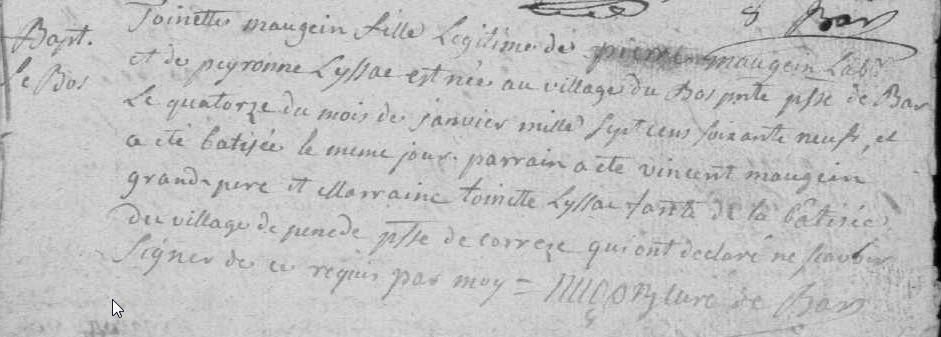 8 Bar
Bapt.
le Bos
Toinette maugein fille Legitime de pierre maugein Labr
et de peyronne Lyssac est née au village du Bos pnte psse de Bar
Le quatorze du mois de janvier mille sept cens soixante neuf, et
a eté batisée le meme jour. parrain a ete vincent maugein
grand-pere et Marraine toinette Lyssac tante de la batisée
du village de penede psse de correze qui ont declaré ne scavoir
signer de ce requis par moy = curé de Bar